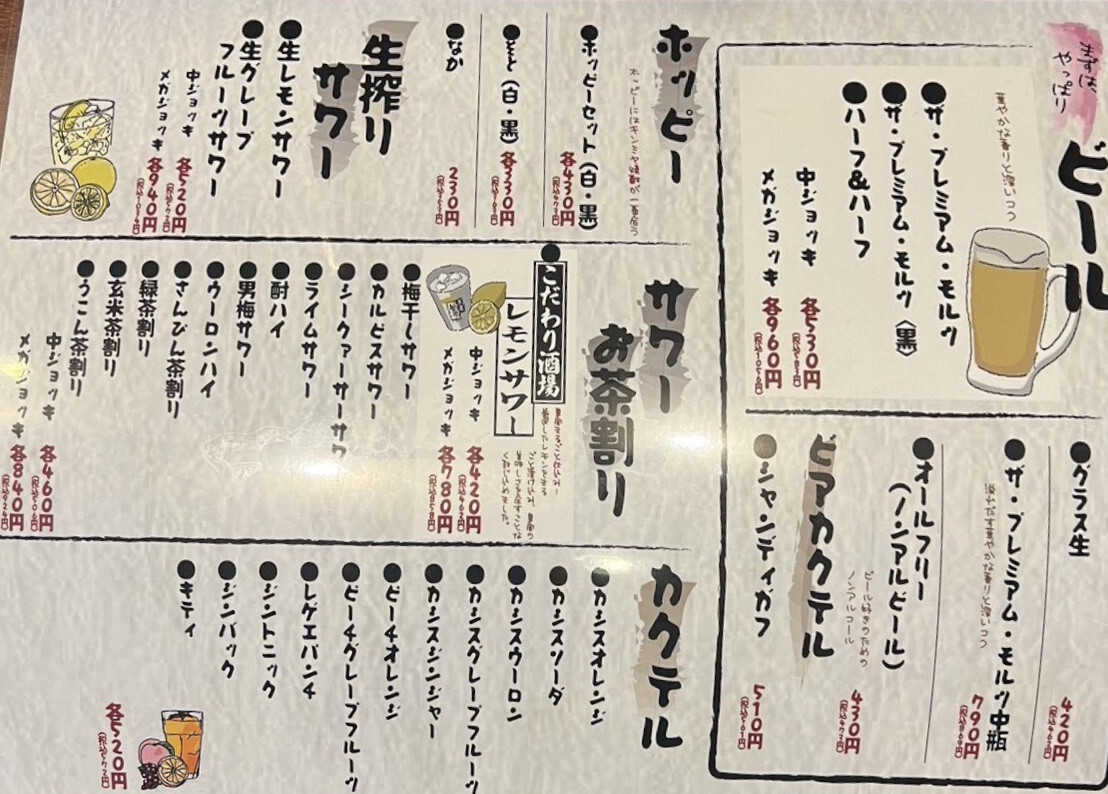 まずは、
やっぱり
ビール
華やかな香りと深いコク
●ザ・プレミアム・モルツ
●ザ・プレミアム・モルツ〈黒〉
●ハーフ&ハーフ
中ジョッキ 各530円
(税込583円)
メガジョッキ 各960円
(税込1056円)
●グラス生
420円
(税込462円)
●ザ・プレミアム・モルツ中瓶
溢れだす華やかな香りと深いコク
790円
(税込869円)
●オールフリー
(ノンアルビール)
ビール好きのための
ノンアルコール
430円
(税込473円)
ビアカクテル
●シャンディガフ
510円
(税込561円)
ホッピー
ホッピーにはキンミヤ焼酎が一番合う
●ホッピーセット(白・黒)
各430円
(税込473円)
●そと(白・黒)
各330円
(税込363円)
●なか
230円
(税込253円)
生搾り
サワー
●生レモンサワー
●生グレープ
フルーツサワー
中ジョッキ 各520円
(税込572円)
メガジョッキ 各940円
(税込1034円)
サワー
お茶割り
●こだわり酒場
レモンサワー
中ジョッキ 各420円
(税込462円)
メガジョッキ 各780円
(税込858円)
●梅干しサワー
●カルピスサワー
●シークァーサーサワ
●ライムサワー
●酎ハイ
●男梅サワー
●ウーロンハイ
●さんぴん茶割り
●緑茶割り
●玄米茶割り
●うこん茶割り
中ジョッキ 各460円
(税込506円)
メガジョッキ 各840円
(税込924円)
カクテル
●カシスオレンジ
●カシスソーダ
●カシスウーロン
●カシスグレープフルーツ
●カシスジンジャー
●ピーチオレンジ
●ピーチグレープフルーツ
●レゲエパンチ
●ジントニック
●ジンバック
●キティ
各520円
(税込572円)